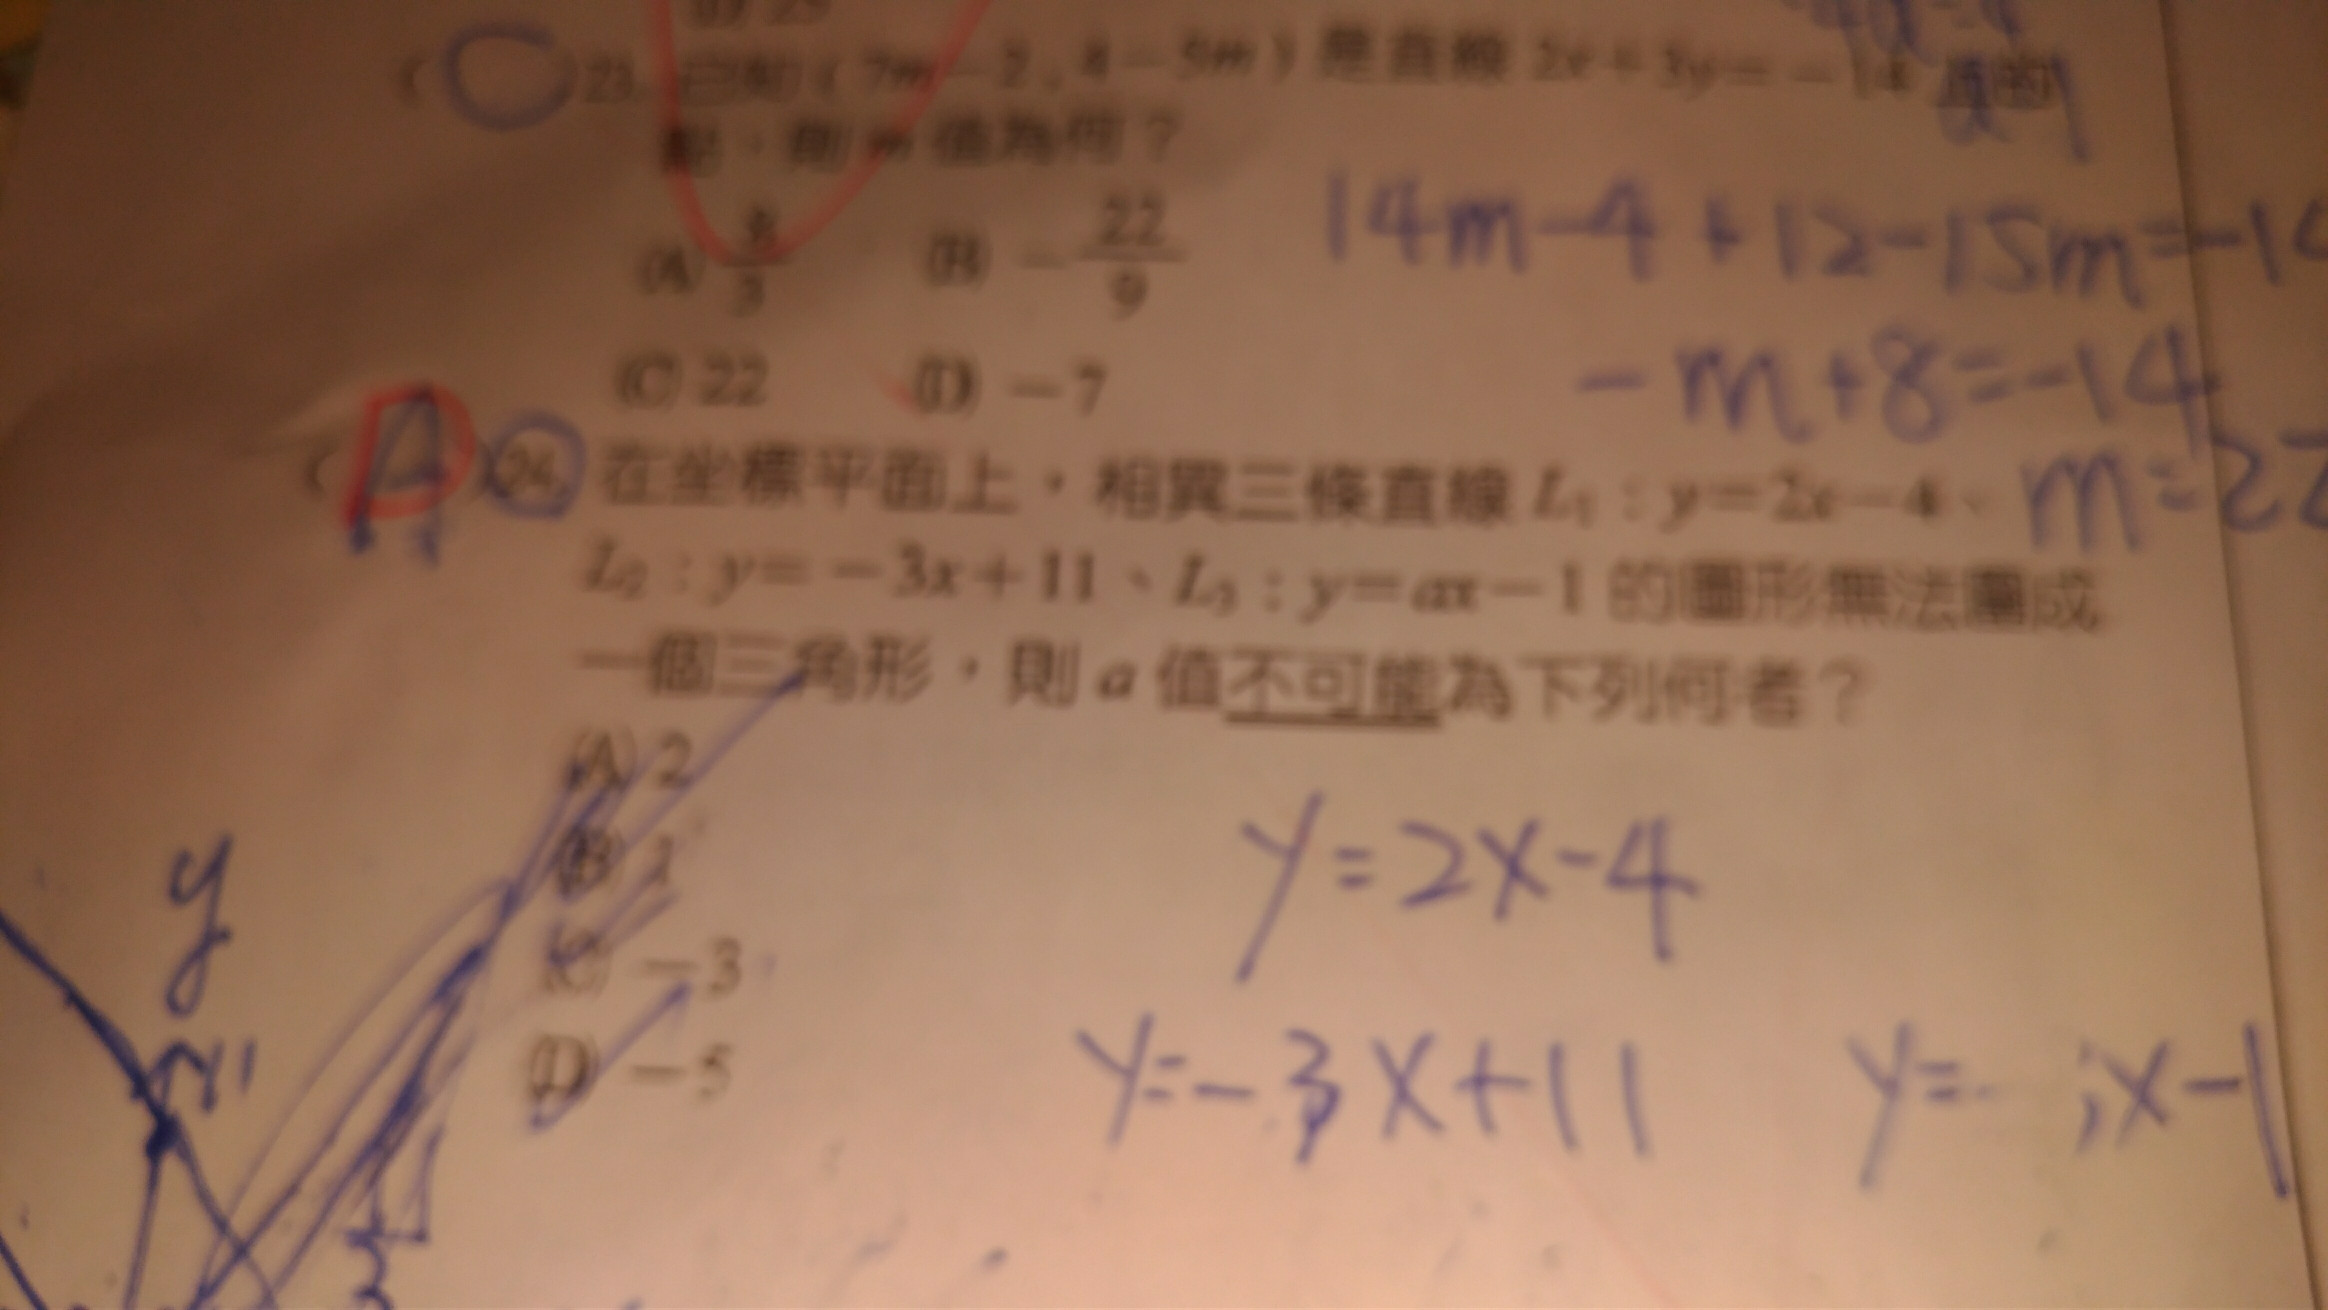 (C)23. 已知(7m-2,4-5m)是直線2x+3y=-14上的
點,則m值為何?
(A) 8/3 (B) -22/9
(C) 22 (D) -7
14m-4+12-15m=-14
-m+8=-14
m=22
24. 在坐標平面上,相異三條直線L₁:y=2x-4、
L₂:y=-3x+11、L₃:y=ax-1的圖形無法圍成
一個三角形,則a值不可能為下列何者?
(A) 2
(B) 1
(C) -3
(D) -5
y=2x-4
y=-3x+11
y= x-1
y